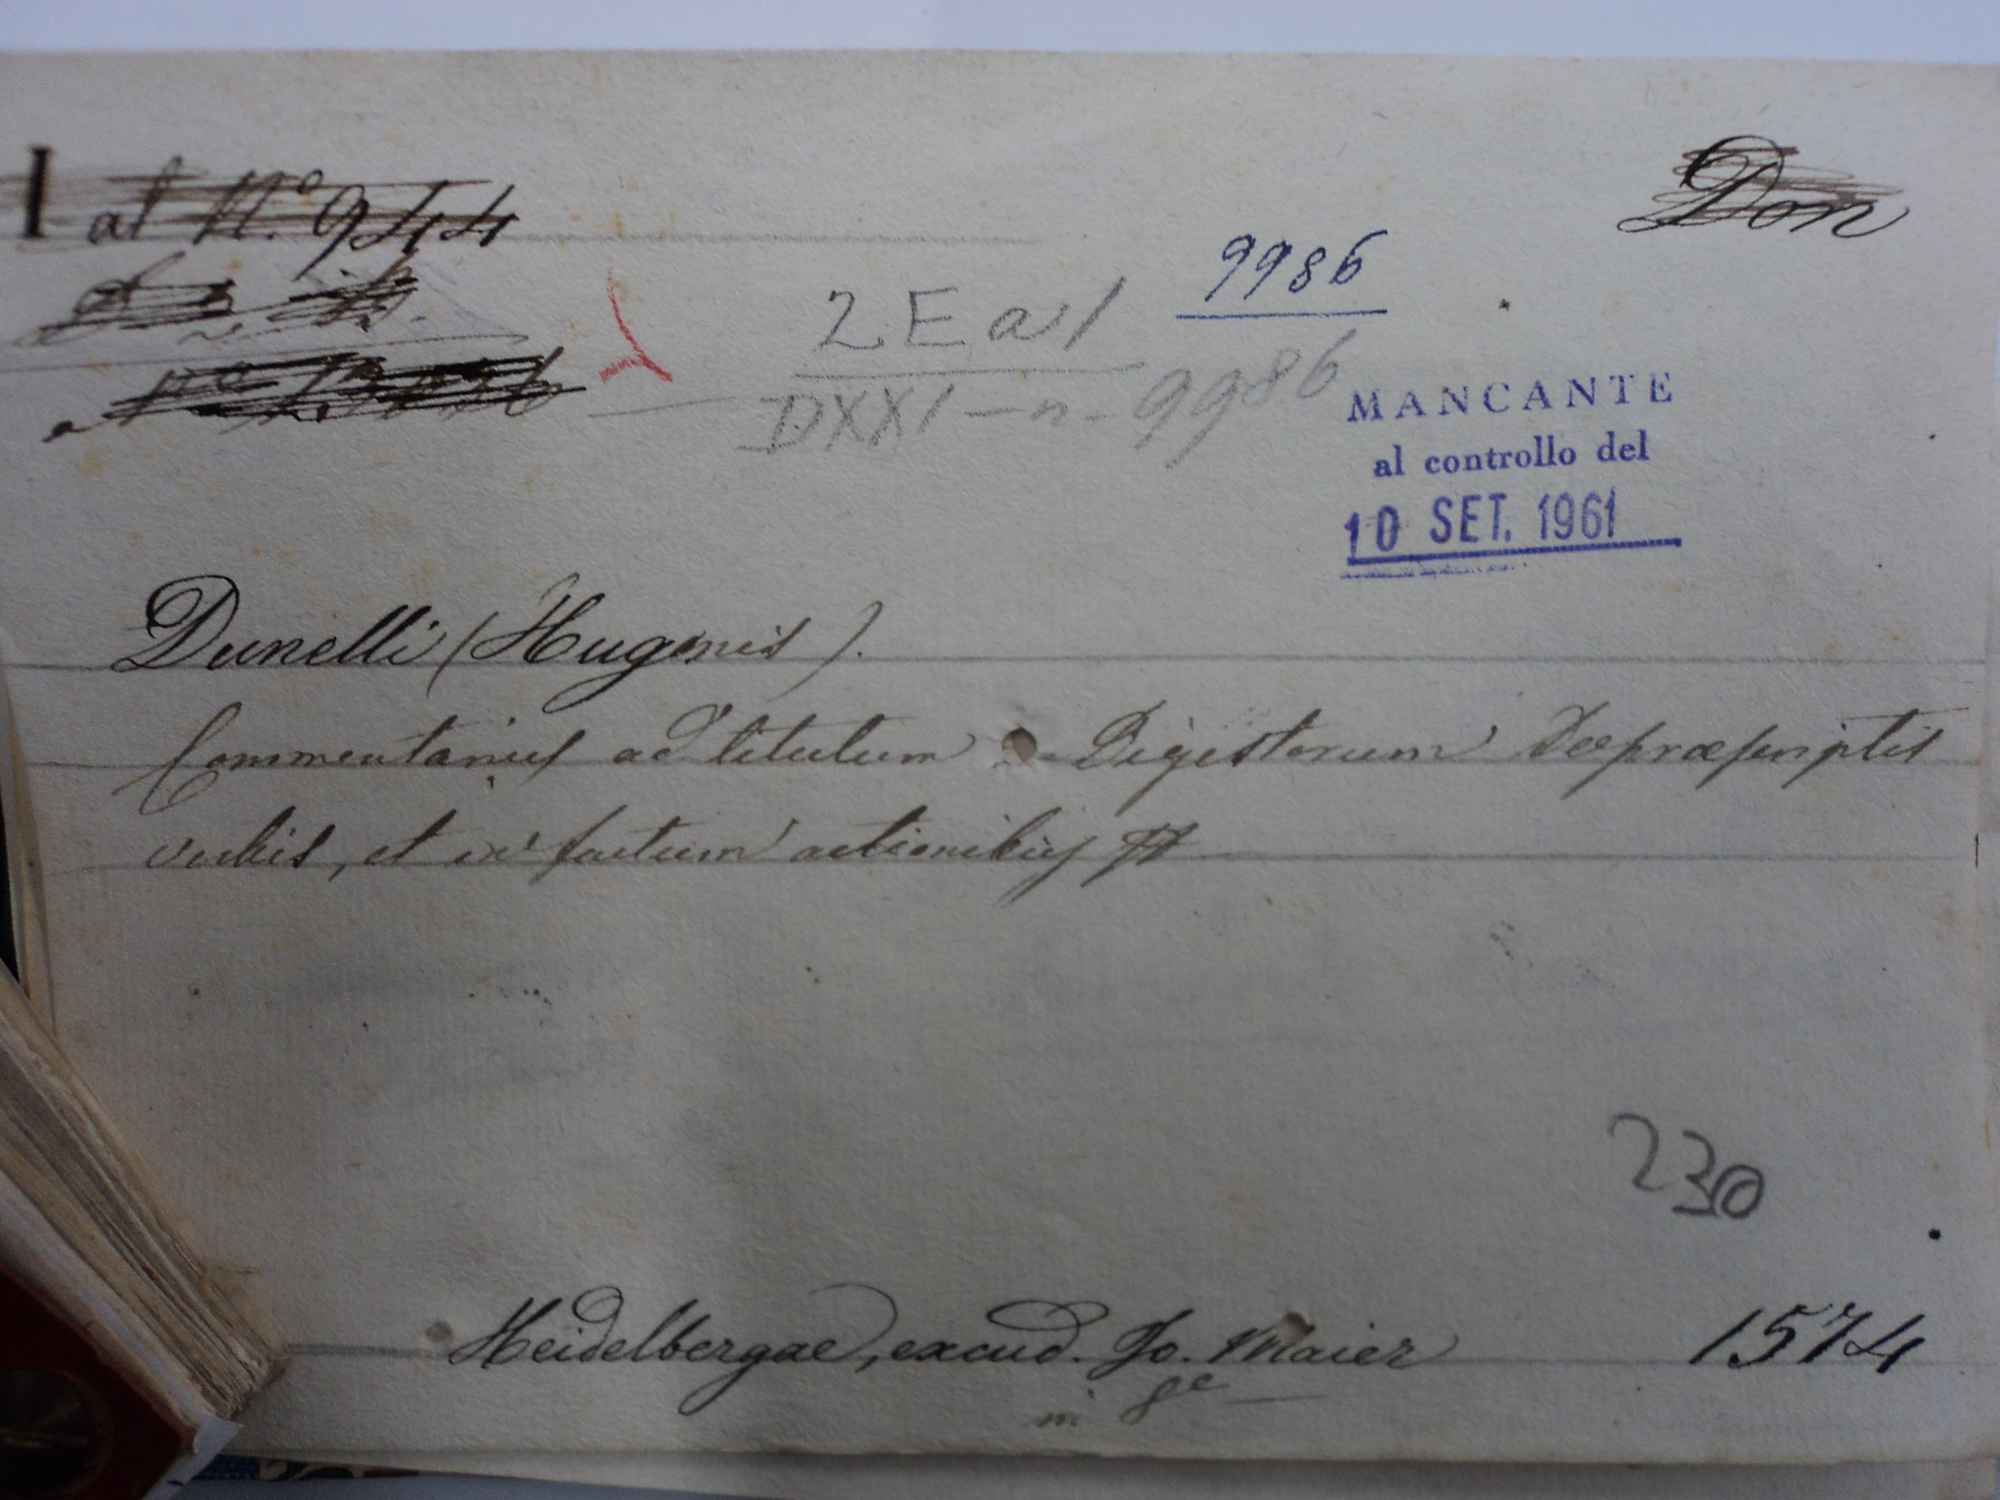 I al N.o 944
Don
9986
2 E a 1
DXXI - n - 9986
MANCANTE
al controllo del
10 SET. 1961
Dunelli (Hugonis).
Commentarius ad titulum Digestorum De præscriptis
verbis, et in factum actionibus
230
Heidelbergae, excud. Jo. Maier 1574
in 8e